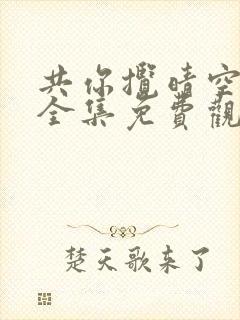 共你攬晴空
全集免費觀
楚天歌来了